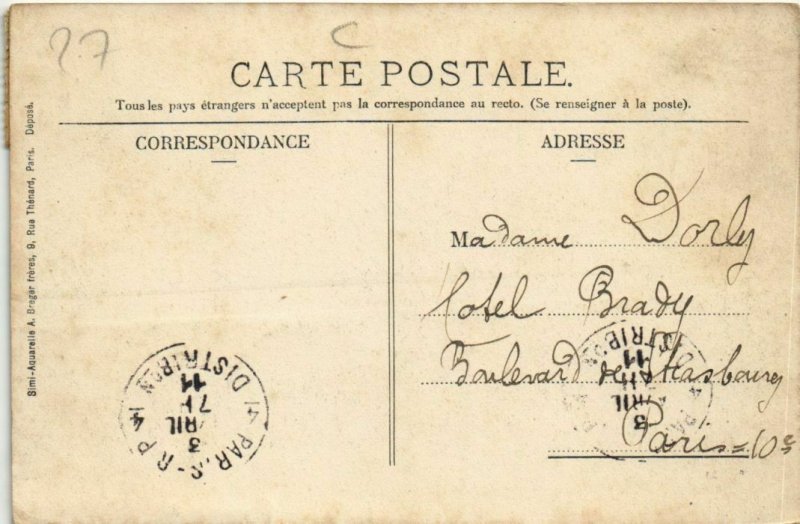 27
C
CARTE POSTALE.
Tous les pays étrangers n'acceptent pas la correspondance au recto. (Se renseigner à la poste).
CORRESPONDANCE
ADRESSE
Madame Dorly
Hotel Brady
Boulevard de Strasbourg
Paris = 10e
Simi-Aquarelle A. Breger frères, 9, Rue Thénard, Paris. Déposé.
PARIS - R.P 4
DISTRIBON
3
11
DISTRIBON
3
11